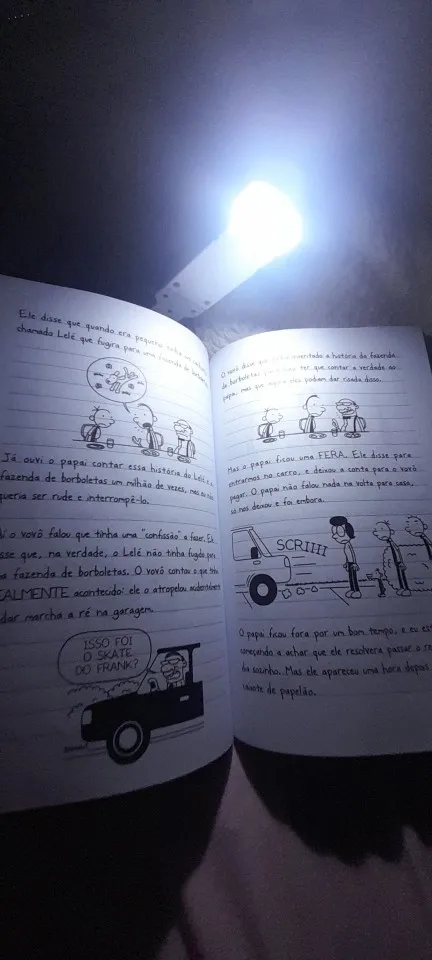 Ele disse que quando era pequeno tinha um cachorro
chamado Lelé que fugira para uma fazenda de borboletas.
Já ouvi o papai contar essa história do Lelé e a
fazenda de borboletas um milhão de vezes, mas eu não
queria ser rude e interrompê-lo.
o vovô falou que tinha uma "confissão" a fazer. Ele
sse que, na verdade, o Lelé não tinha fugido para
a fazenda de borboletas. O vovô contou o que tinha
EALMENTE acontecido: ele o atropelou acidentalmente
dar marcha a ré na garagem.
ISSO FOI
O SKATE
DO FRANK?
O vovô disse que tinha inventado a história da fazenda
de borboletas para não ter que contar a verdade ao
papai, mas que agora eles podiam dar risada disso.
Mas o papai ficou uma FERA. Ele disse para
entrarmos no carro, e deixou a conta para o vovô
pagar. O papai não falou nada na volta para casa,
só nos deixou e foi embora.
SCRIIII
O papai ficou fora por um bom tempo, e eu est
começando a achar que ele resolvera passar o re
dia sozinho. Mas ele apareceu uma hora depois
caixote de papelão.